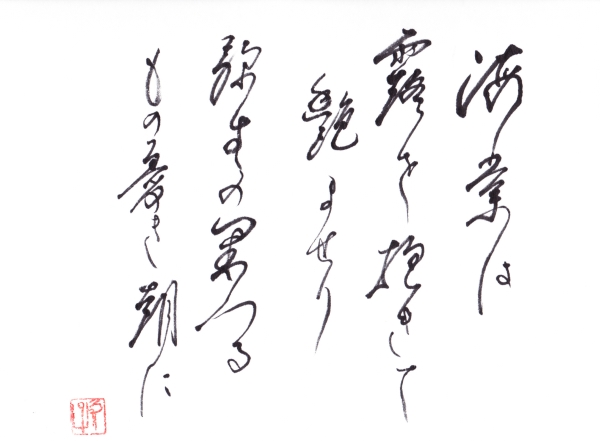 海棠は
露を抱きて
艶ませり
弥生の果つる
もの憂き朝に